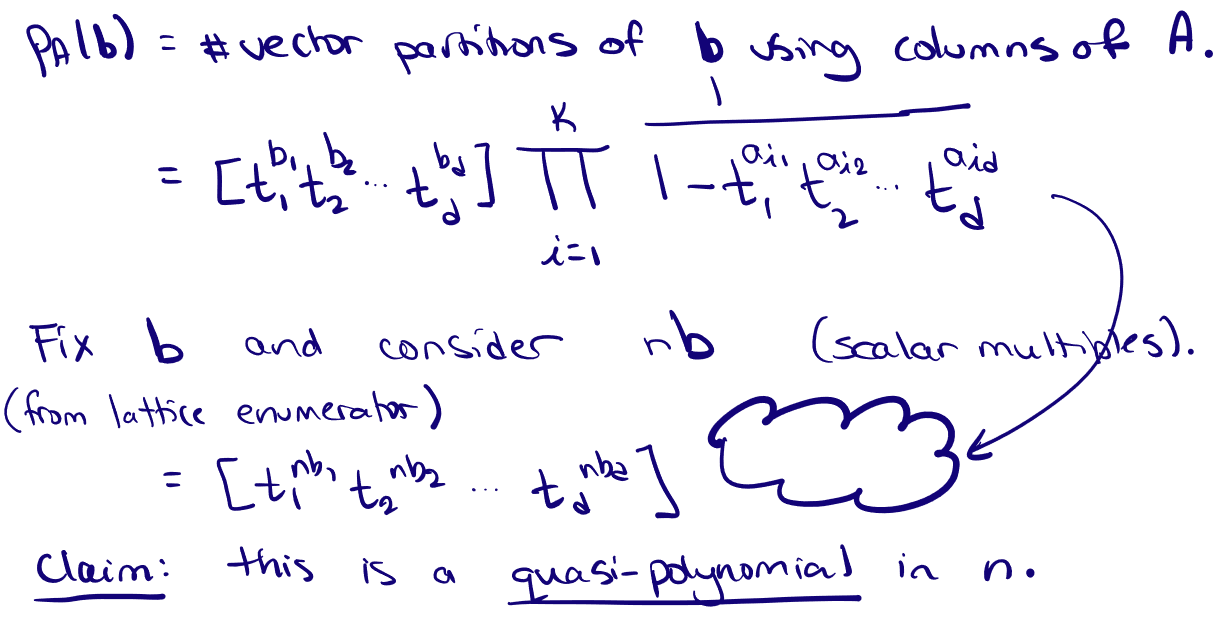 p_A(b) = # vector partitions of b using columns of A.
= [t_1^{b_1} t_2^{b_2} ... t_d^{b_d}] \prod_{i=1}^{K} \frac{1}{1 - t_1^{a_{i1}} t_2^{a_{i2}} ... t_d^{a_{id}}}
Fix b and consider nb (scalar multiples).
(from lattice enumerator)
= [t_1^{nb_1} t_2^{nb_2} ... t_d^{nb_d}]
Claim: this is a quasi-polynomial in n.